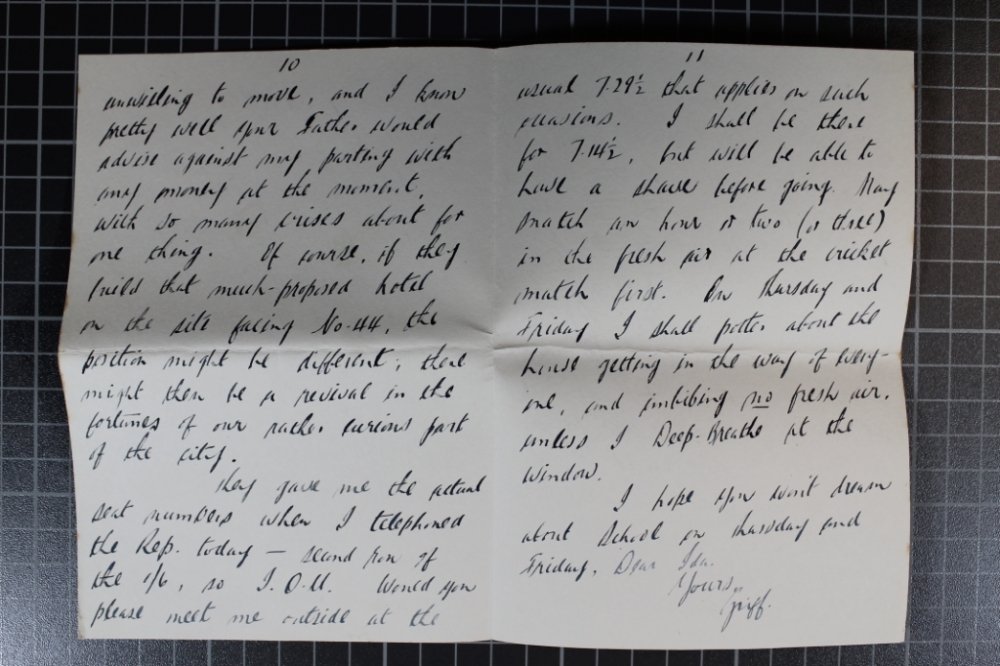 10
unwilling to move, and I know
pretty well your Father would
advise against my parting with
any money at the moment,
with so many crises about for
one thing. Of course, if they
build that much-proposed hotel
on the site facing No. 44, the
position might be different; there
might then be a revival in the
fortunes of our rather curious part
of the city.
They gave me the actual
seat numbers when I telephoned
the Rep. today — second row of
the 1/6, so I.O.U. Would you
please meet me outside at the
11
usual 7.29½ that applies on such
occasions. I shall be there
for 7.14½, but will be able to
have a shave before going. May
snatch an hour or two (or three)
in the fresh air at the cricket
match first. On Thursday and
Friday I shall potter about the
house getting in the way of every-
one, and imbibing no fresh air,
unless I Deep-Breathe at the
window.
I hope you won't dream
about School on Thursday and
Friday, Dear Ida.
Yours,
Griff.